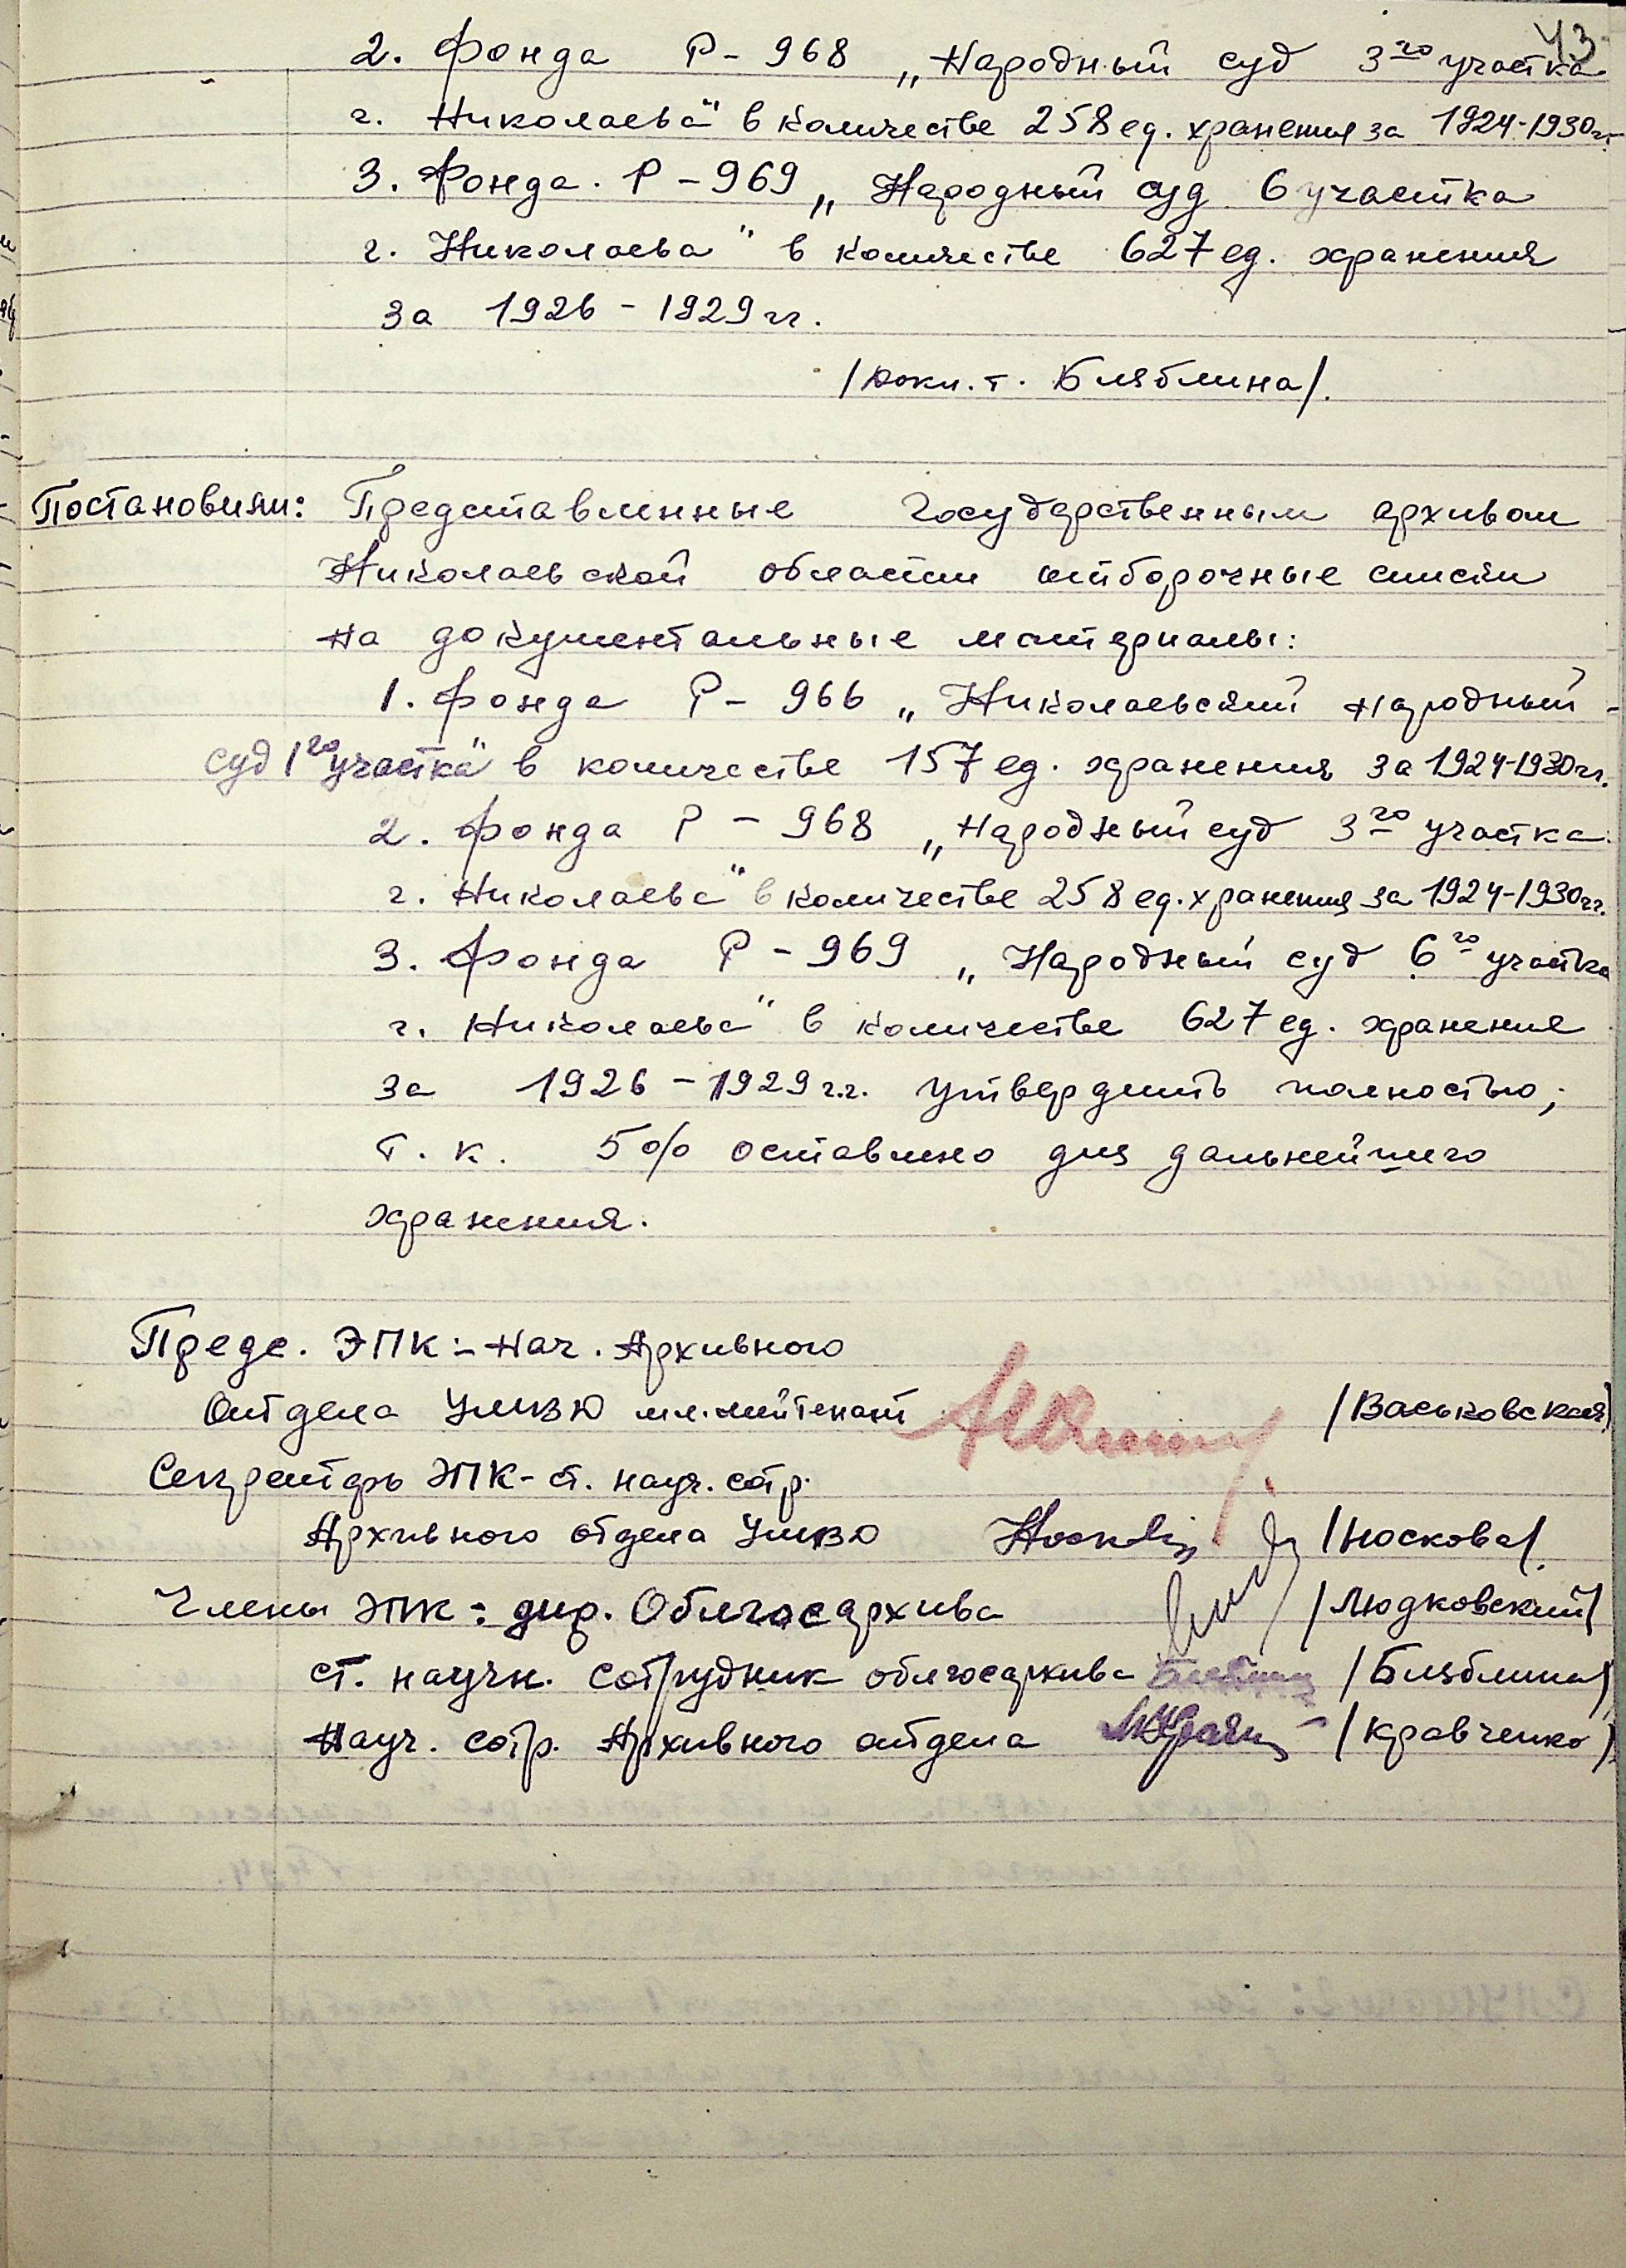 43
2. Фонда Р-968 „Народный суд 3го участка
г. Николаева" в количестве 258 ед. хранения за 1924-1930гг.
3. Фонда. Р-969 „Народный суд 6 участка
г. Николаева" в количестве 627 ед. хранения
за 1926-1929 гг.
/докл. т. Бляблина/.
Постановили: Представленные Государственным архивом
Николаевской области отборочные списки
на документальные материалы:
1. Фонда Р-966 „Николаевский народный
суд 1го участка" в количестве 157 ед. хранения за 1924-1930гг.
2. Фонда Р-968 „Народный суд 3го участка
г. Николаева" в количестве 258 ед. хранения за 1924-1930гг.
3. Фонда Р-969 „Народный суд 6го участка
г. Николаева" в количестве 627 ед. хранения
за 1926-1929 г.г. утвердить полностью,
т. к. 5% оставлено для дальнейшего
хранения.
Предс. ЭПК:- Нач. Архивного
Отдела УМВД мл. лейтенант /Васьковская/
Секретарь ЭПК- ст. науч. сотр.
Архивного отдела УМВД /Носкова/.
Члены ЭПК: дир. Облгосархива /Людковский/
ст. научн. сотрудник облгосархива /Бляблина/
Науч. сотр. Архивного отдела /Кравченко/